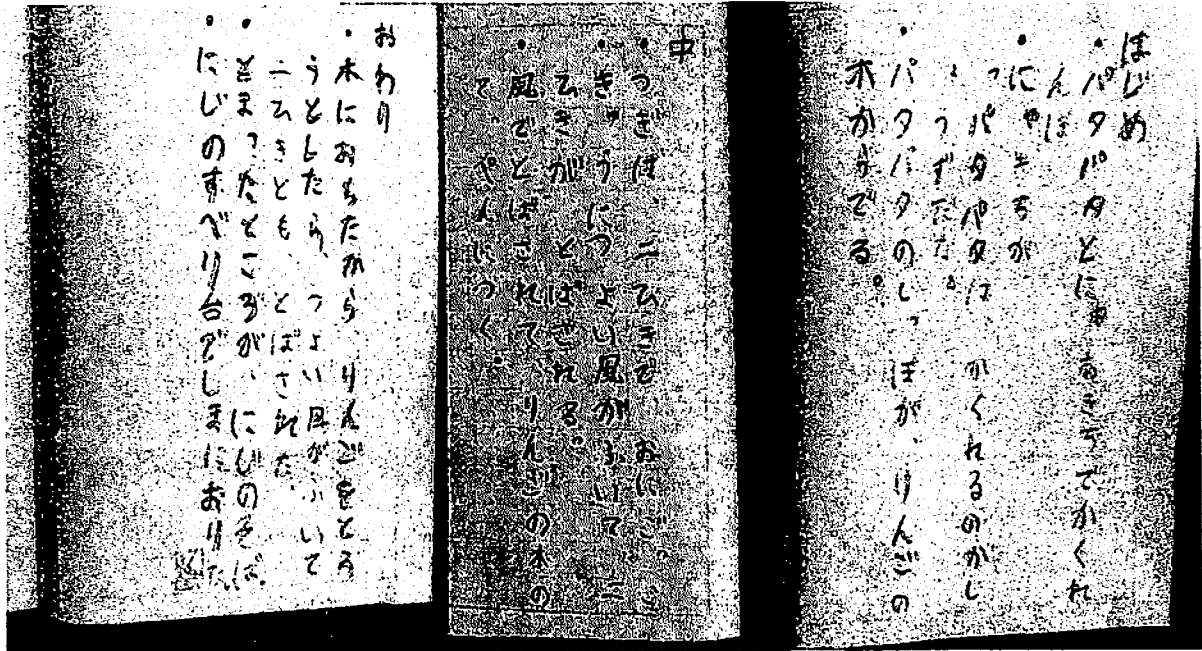 はじめ
・パタパタとにゃあきちでかくれ
んぼ
・にゃきちが
パタパタは かくれるのがし
ょうずだ。
・パタパタのしっぽが、りんごの
木からでる。
中
・つぎは、二ひきで、おにごっこ
・きゅうにつよい風がふいて二
ひきがとばされる。
・風でとばされて、りんごの木の
てっぺんにつく。
おわり
・木におちたから、りんごをとろ
うとしたら、つよい風がふいて
二ひきとも、とばされた。
・とまったところが、にじの
・にじのすべり台でしまにおりた。